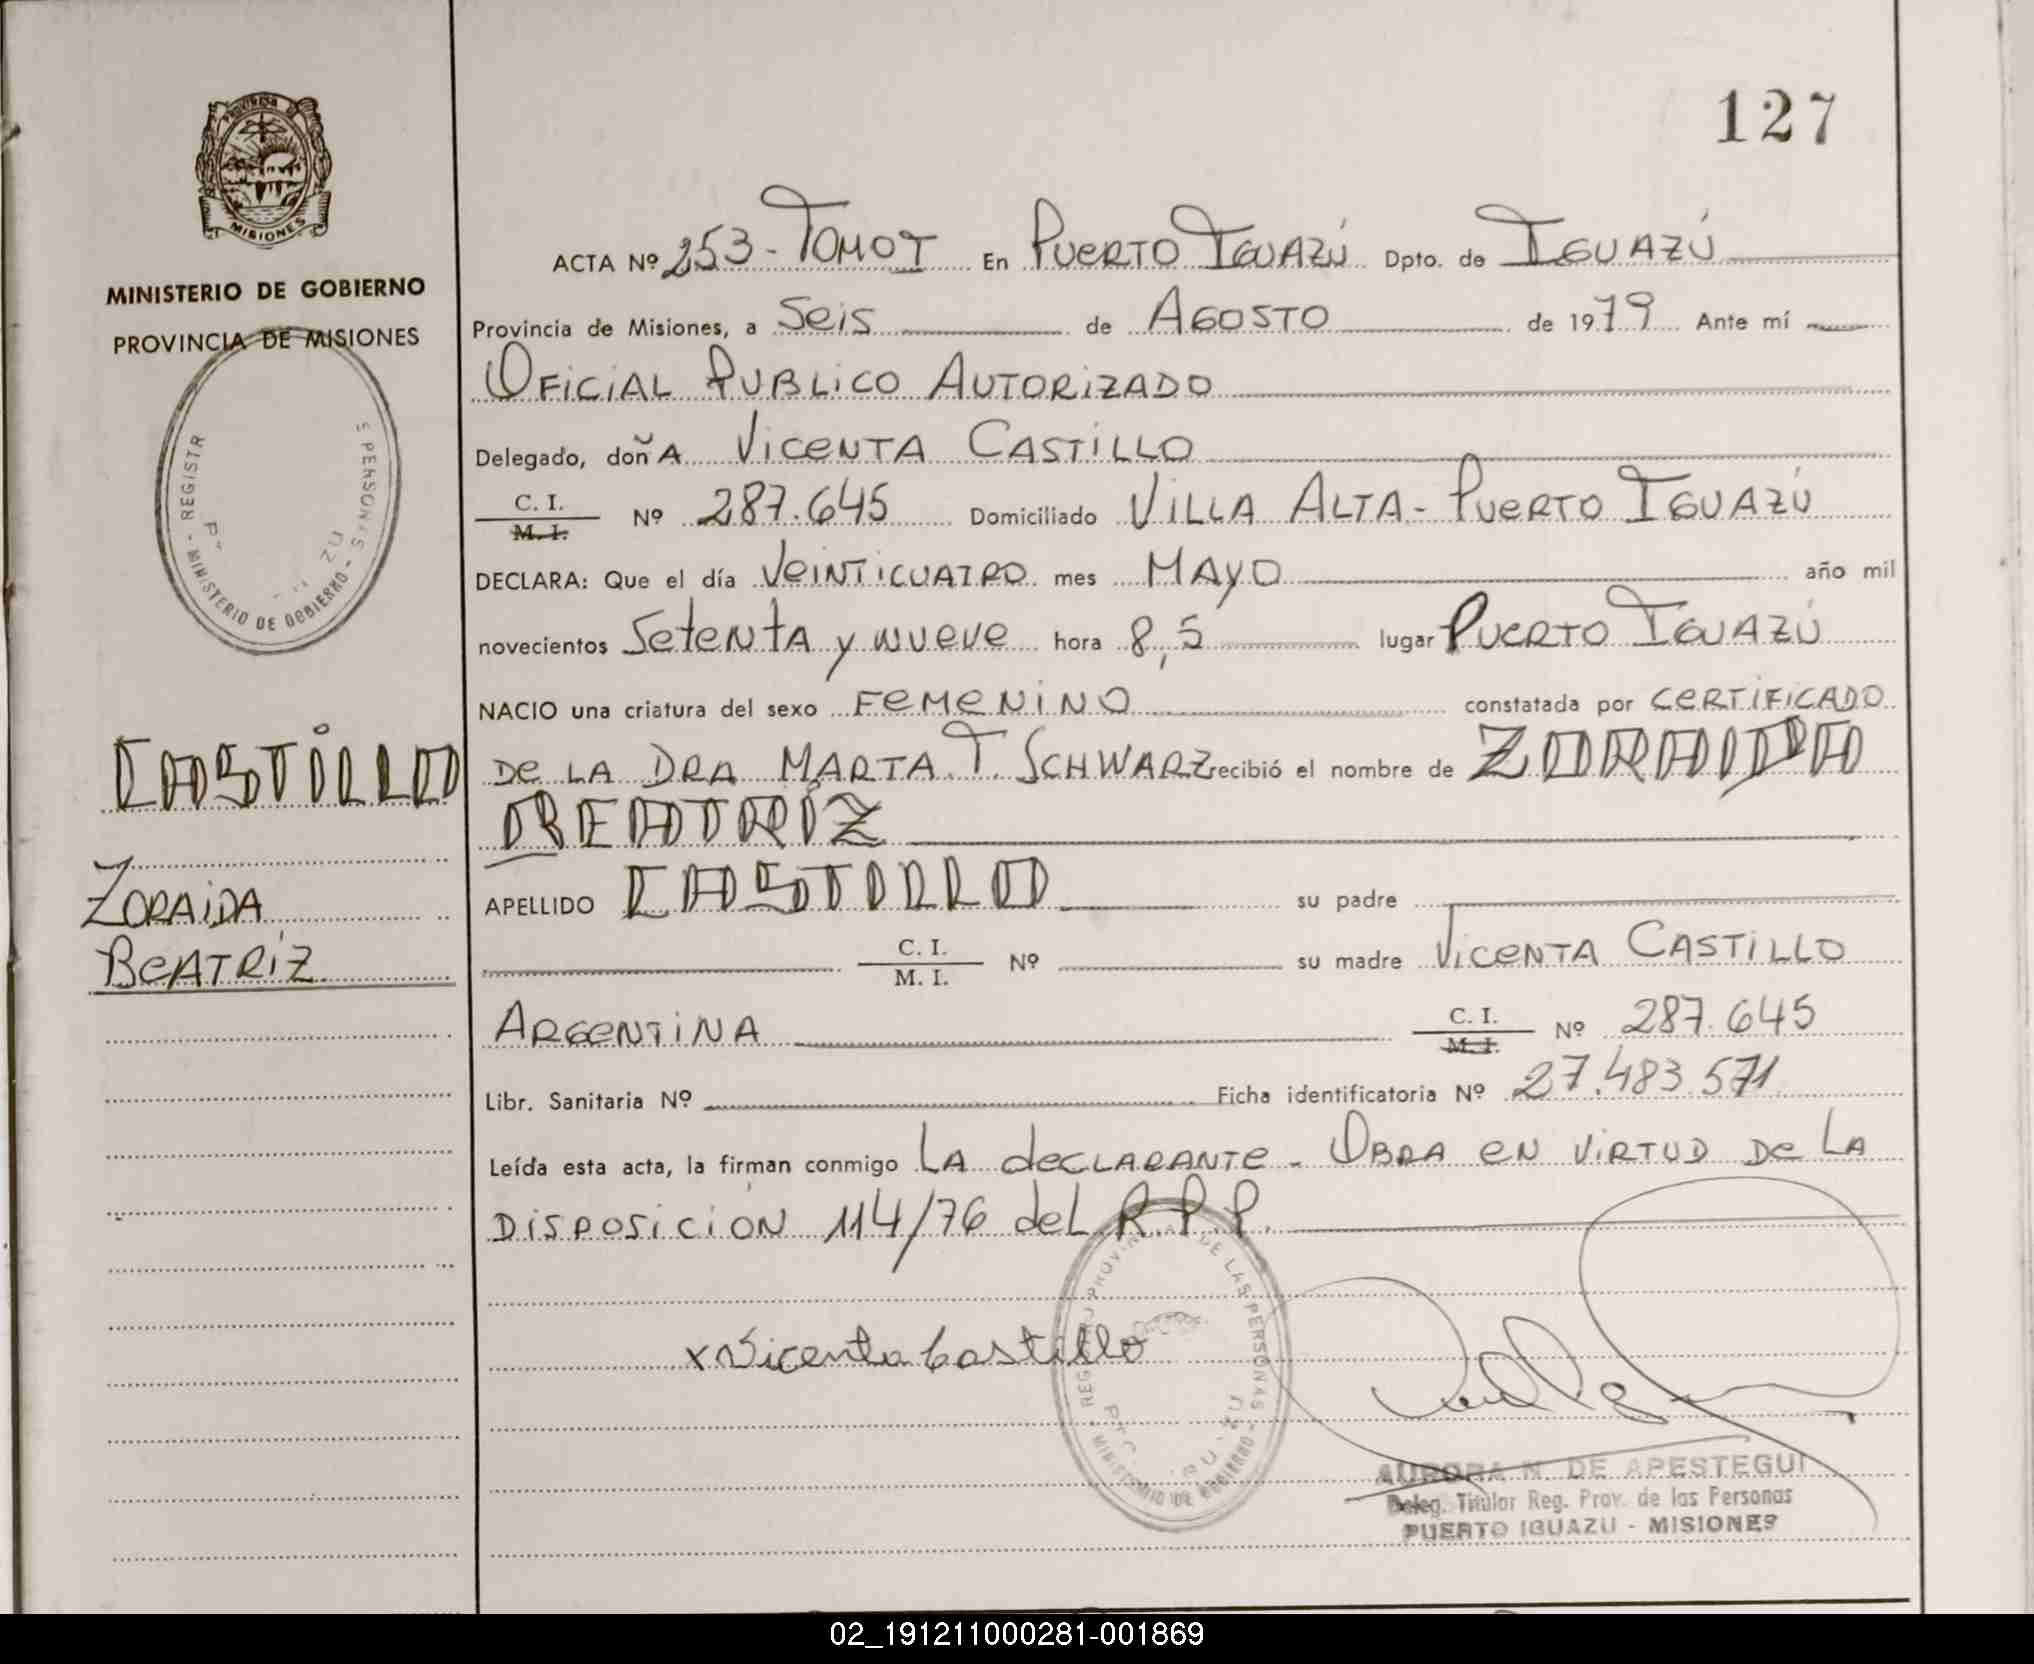 127
PROVINCIA DE
MISIONES
MINISTERIO DE GOBIERNO
PROVINCIA DE MISIONES
REGISTR
S PERSONAS
- MINISTERIO DE GOBIERNO -
ACTA Nº 253-TOMO I En PUERTO IGUAZÚ Dpto. de IGUAZÚ
Provincia de Misiones, a Seis de AGOSTO de 1979 Ante mí
OFICIAL PUBLICO AUTORIZADO
Delegado, doñA VICENTA CASTILLO
C. I.
M. I. Nº 287.645 Domiciliado VILLA ALTA - PUERTO IGUAZÚ
DECLARA: Que el día VEINTICUATRO mes MAYO año mil
novecientos Setenta y nueve hora 8,5 lugar PUERTO IGUAZÚ
NACIO una criatura del sexo FEMENINO constatada por CERTIFICADO
DE LA DRA MARTA T. SCHWARZ recibió el nombre de ZORAIDA
BEATRIZ
CASTILLO
ZORAIDA
BEATRIZ
APELLIDO CASTILLO su padre
C. I.
M. I. Nº su madre VICENTA CASTILLO
ARGENTINA C. I.
M. I. Nº 287.645
Libr. Sanitaria Nº Ficha identificatoria Nº 27.483.571
Leída esta acta, la firman conmigo LA declARANTE - OBRA EN VIRTUD DE LA
DISPOSICIÓN 114/76 del R.P.P.
x Vicenta Castillo
DE LAS PERSONAS
MINISTERIO DE GOBIERNO
AURORA N. DE APESTEGUI
Deleg. Titular Reg. Prov. de las Personas
PUERTO IGUAZU - MISIONES
02_191211000281-001869